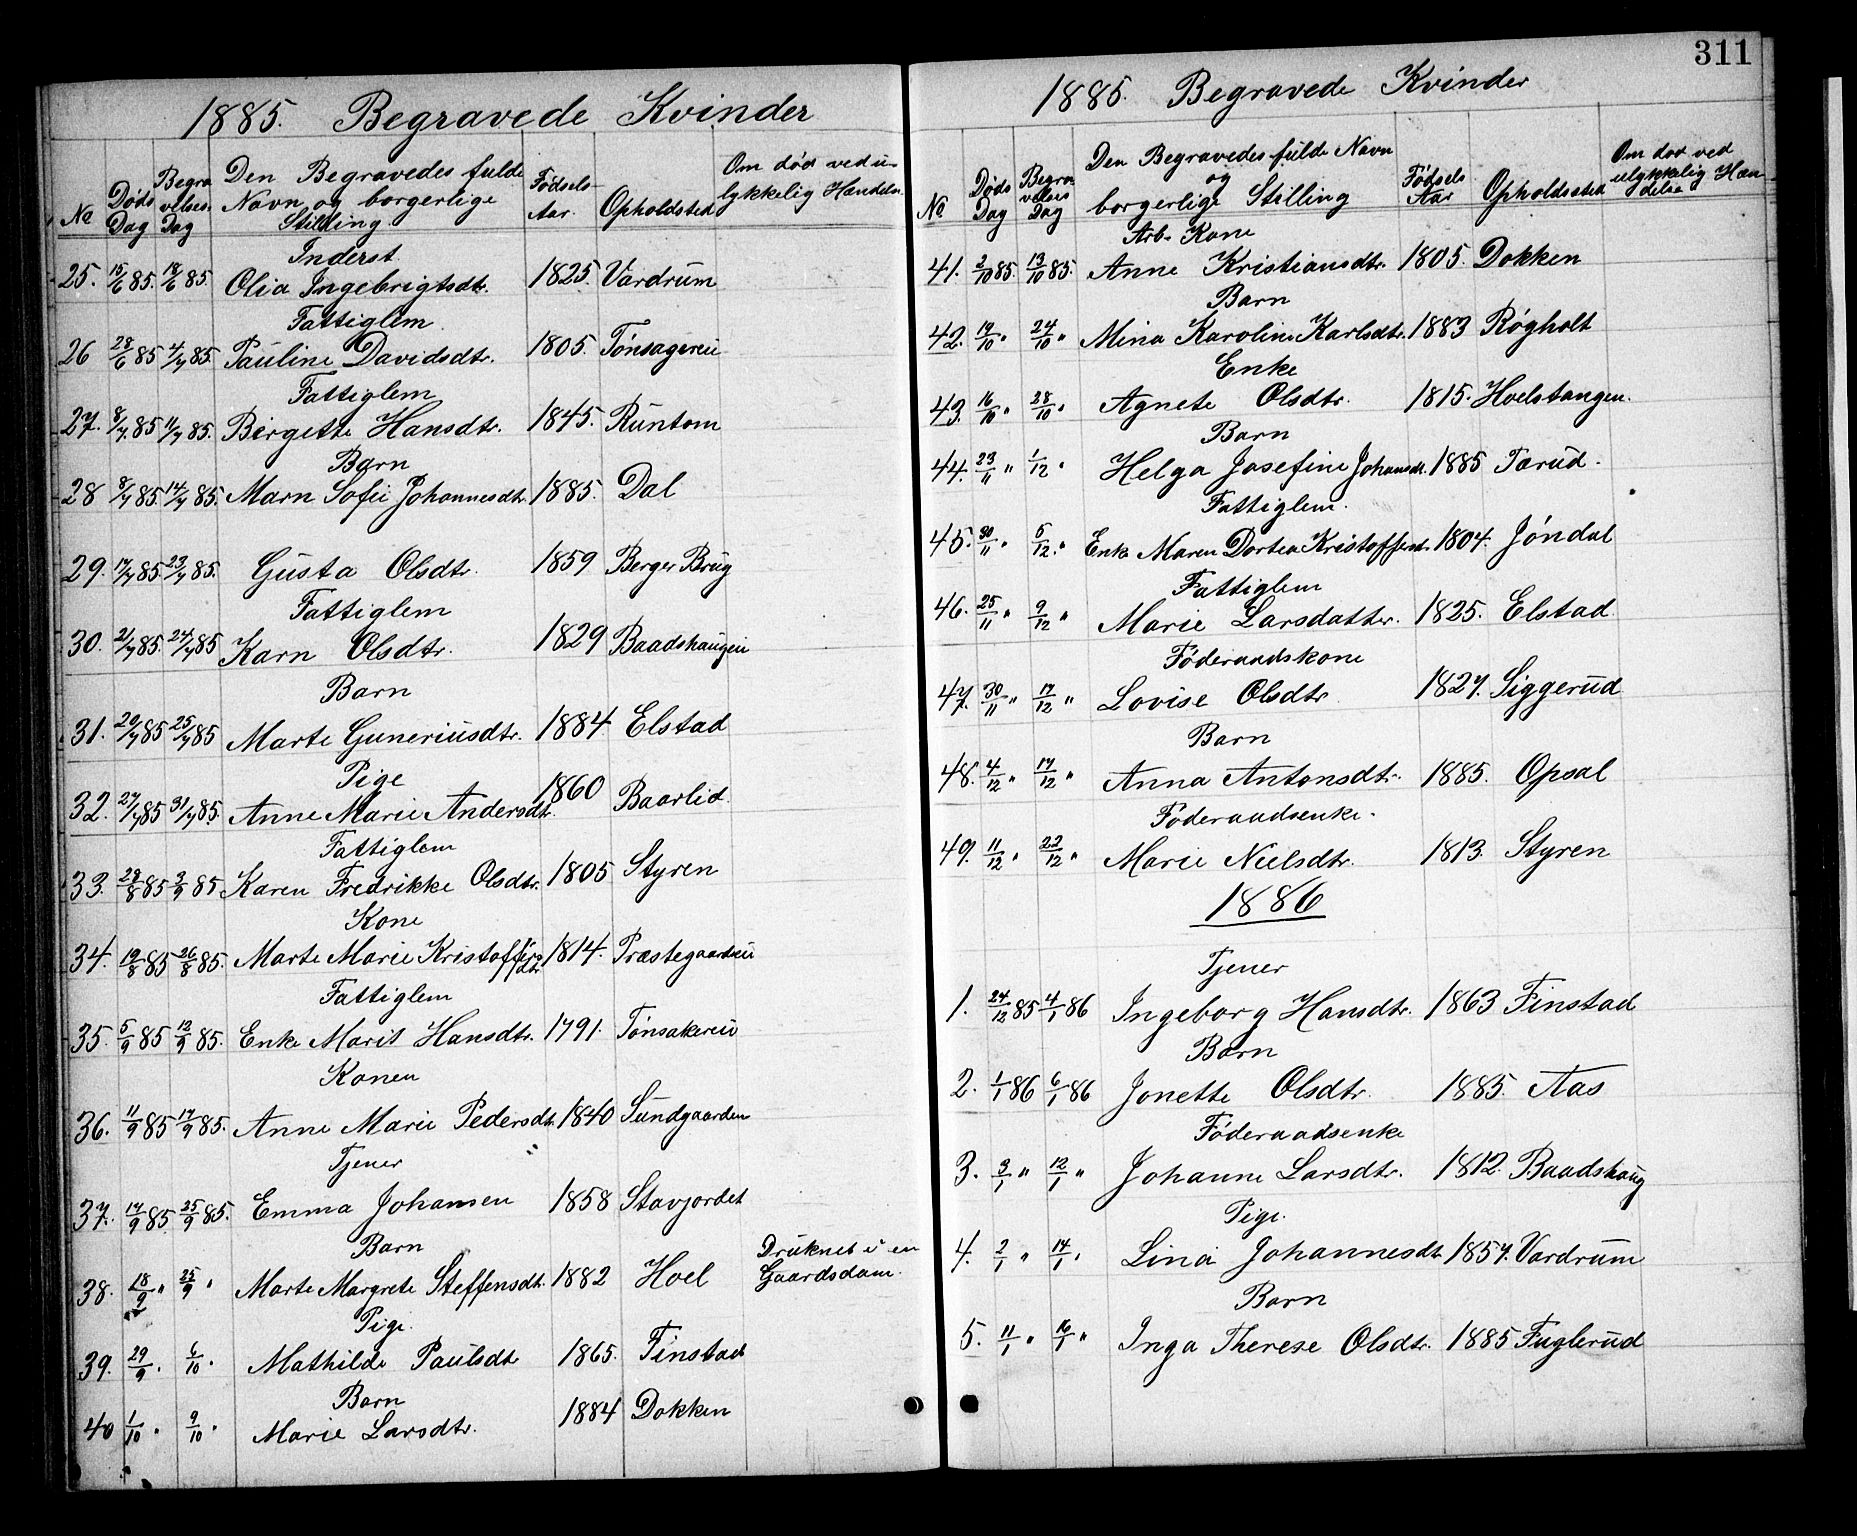 1885. Begravede Kvinder
№ Døds Dag Begra velses Dag Den Begravedes fulde Navn og borgerlige Stilling Fødsels Aar. Opholdsted Om død ved u- lykkelig Hændelse
Inderst.
25. 15/6 85. 18/6 85. Olia Ingebrigtsdtr. 1825. Vardrum
Fattiglem.
26 28/6 85 4/7 85. Pauline Davidsdtr. 1805. Tønsagereie
Fattiglem
27. 8/7 85 11/7 85. Birgette Hansdtr. 1845. Runtom
Barn
28 8/7 85. 14/7 85. Marn Sofie Johannesdtr 1885. Dal
29. 17/7 85. 23/7 85. Gusta Olsdtr. 1859 Berger Brug
Fattiglem
30. 21/7 85. 24/7 85 Karn Olsdtr. 1829 Baadshaugen
Barn
31. 20/7 85 25/7 85 Marte Guneriusdtr. 1884 Elstad
Pige
32. 27/7 85 31/7 85. Anne Marie Andersdtr. 1860 Baarlid.
Fattiglem
33. 28/8 85 3/9 85. Karen Fredrikke Olsdtr. 1805 Styren
Kone
34. 19/8 85 26/8 85. Marte Marie Kristoffersdtr 1814. Præstegaardseie
Fattiglem
35. 5/9 85 12/9 85. Enke Marit Hansdtr. 1791. Tønsakereie
Konen
36. 11/9 85 17/9 85. Anne Marie Pedersdt. 1840 Sundgaarden
Tjener
37. 17/9 85 25/9 85. Emma Johansen 1858 Stavjordet
Barn
38. 18/9 " 25/9 " Marte Margrete Steffensdt. 1882 Hoel Druknet i en Gaardsdam.
Pige.
39. 29/9 " 6/10 " Mathilde Paulsdt 1865. Finstad
Barn
40 1/10 " 9/10 " Marie Larsdtr. 1884 Dokken
311
1885. Begravede Kvinder
№ Døds Dag Begra velses Dag Den Begravedes fulde Navn og borgerlige Stilling Fødsels Aar Opholdssted Om død ved ulykkelig Hæn delse
Arb. Kone
41. 2/10 85. 13/10 85. Anne Kristiansdtr. 1805. Dokken
Barn
42. 19/10 " 24/10 " Mina Karoline Karlsdtr. 1883 Røgholt
Enke
43. 16/10 " 28/10 " Agnete Olsdtr. 1815. Hoelstangen.
Barn
44. 23/11 " 1/12 " Helga Josefine Johansdt. 1885 Tærud.
Fattiglem.
45. 30/11 " 5/12 " Enke Maren Dortea Kristoffersdt. 1804. Jøndal
Fattiglem
46. 25/11 " 9/12 " Marie Larsdatter. 1825. Elstad
Føderaadskone
47. 30/11 " 17/12 " Lovise Olsdtr 1827. Siggerud
Barn
48. 4/12 " 17/12 " Anna Antonsdtr. 1885. Opsal
Føderaadsenke.
49. 11/12 " 22/12 " Marie Nielsdtr. 1813. Styren
1886
Tjener
1. 24/12 85 4/1 86 Ingeborg Hansdtr. 1863 Finstad
Barn
2. 1/1 86 6/1 86 Jonette Olsdtr. 1885. Aas
Føderaadsenke
3. 3/1 " 12/1 " Johanne Larsdtr. 1812. Baadshaug
Pige.
4. 2/1 " 14/1 " Lina Johannesdt 1857. Vardrum
Barn
5. 11/1 " 16/1 " Inga Therese Olsdtr. 1885 Fuglerud